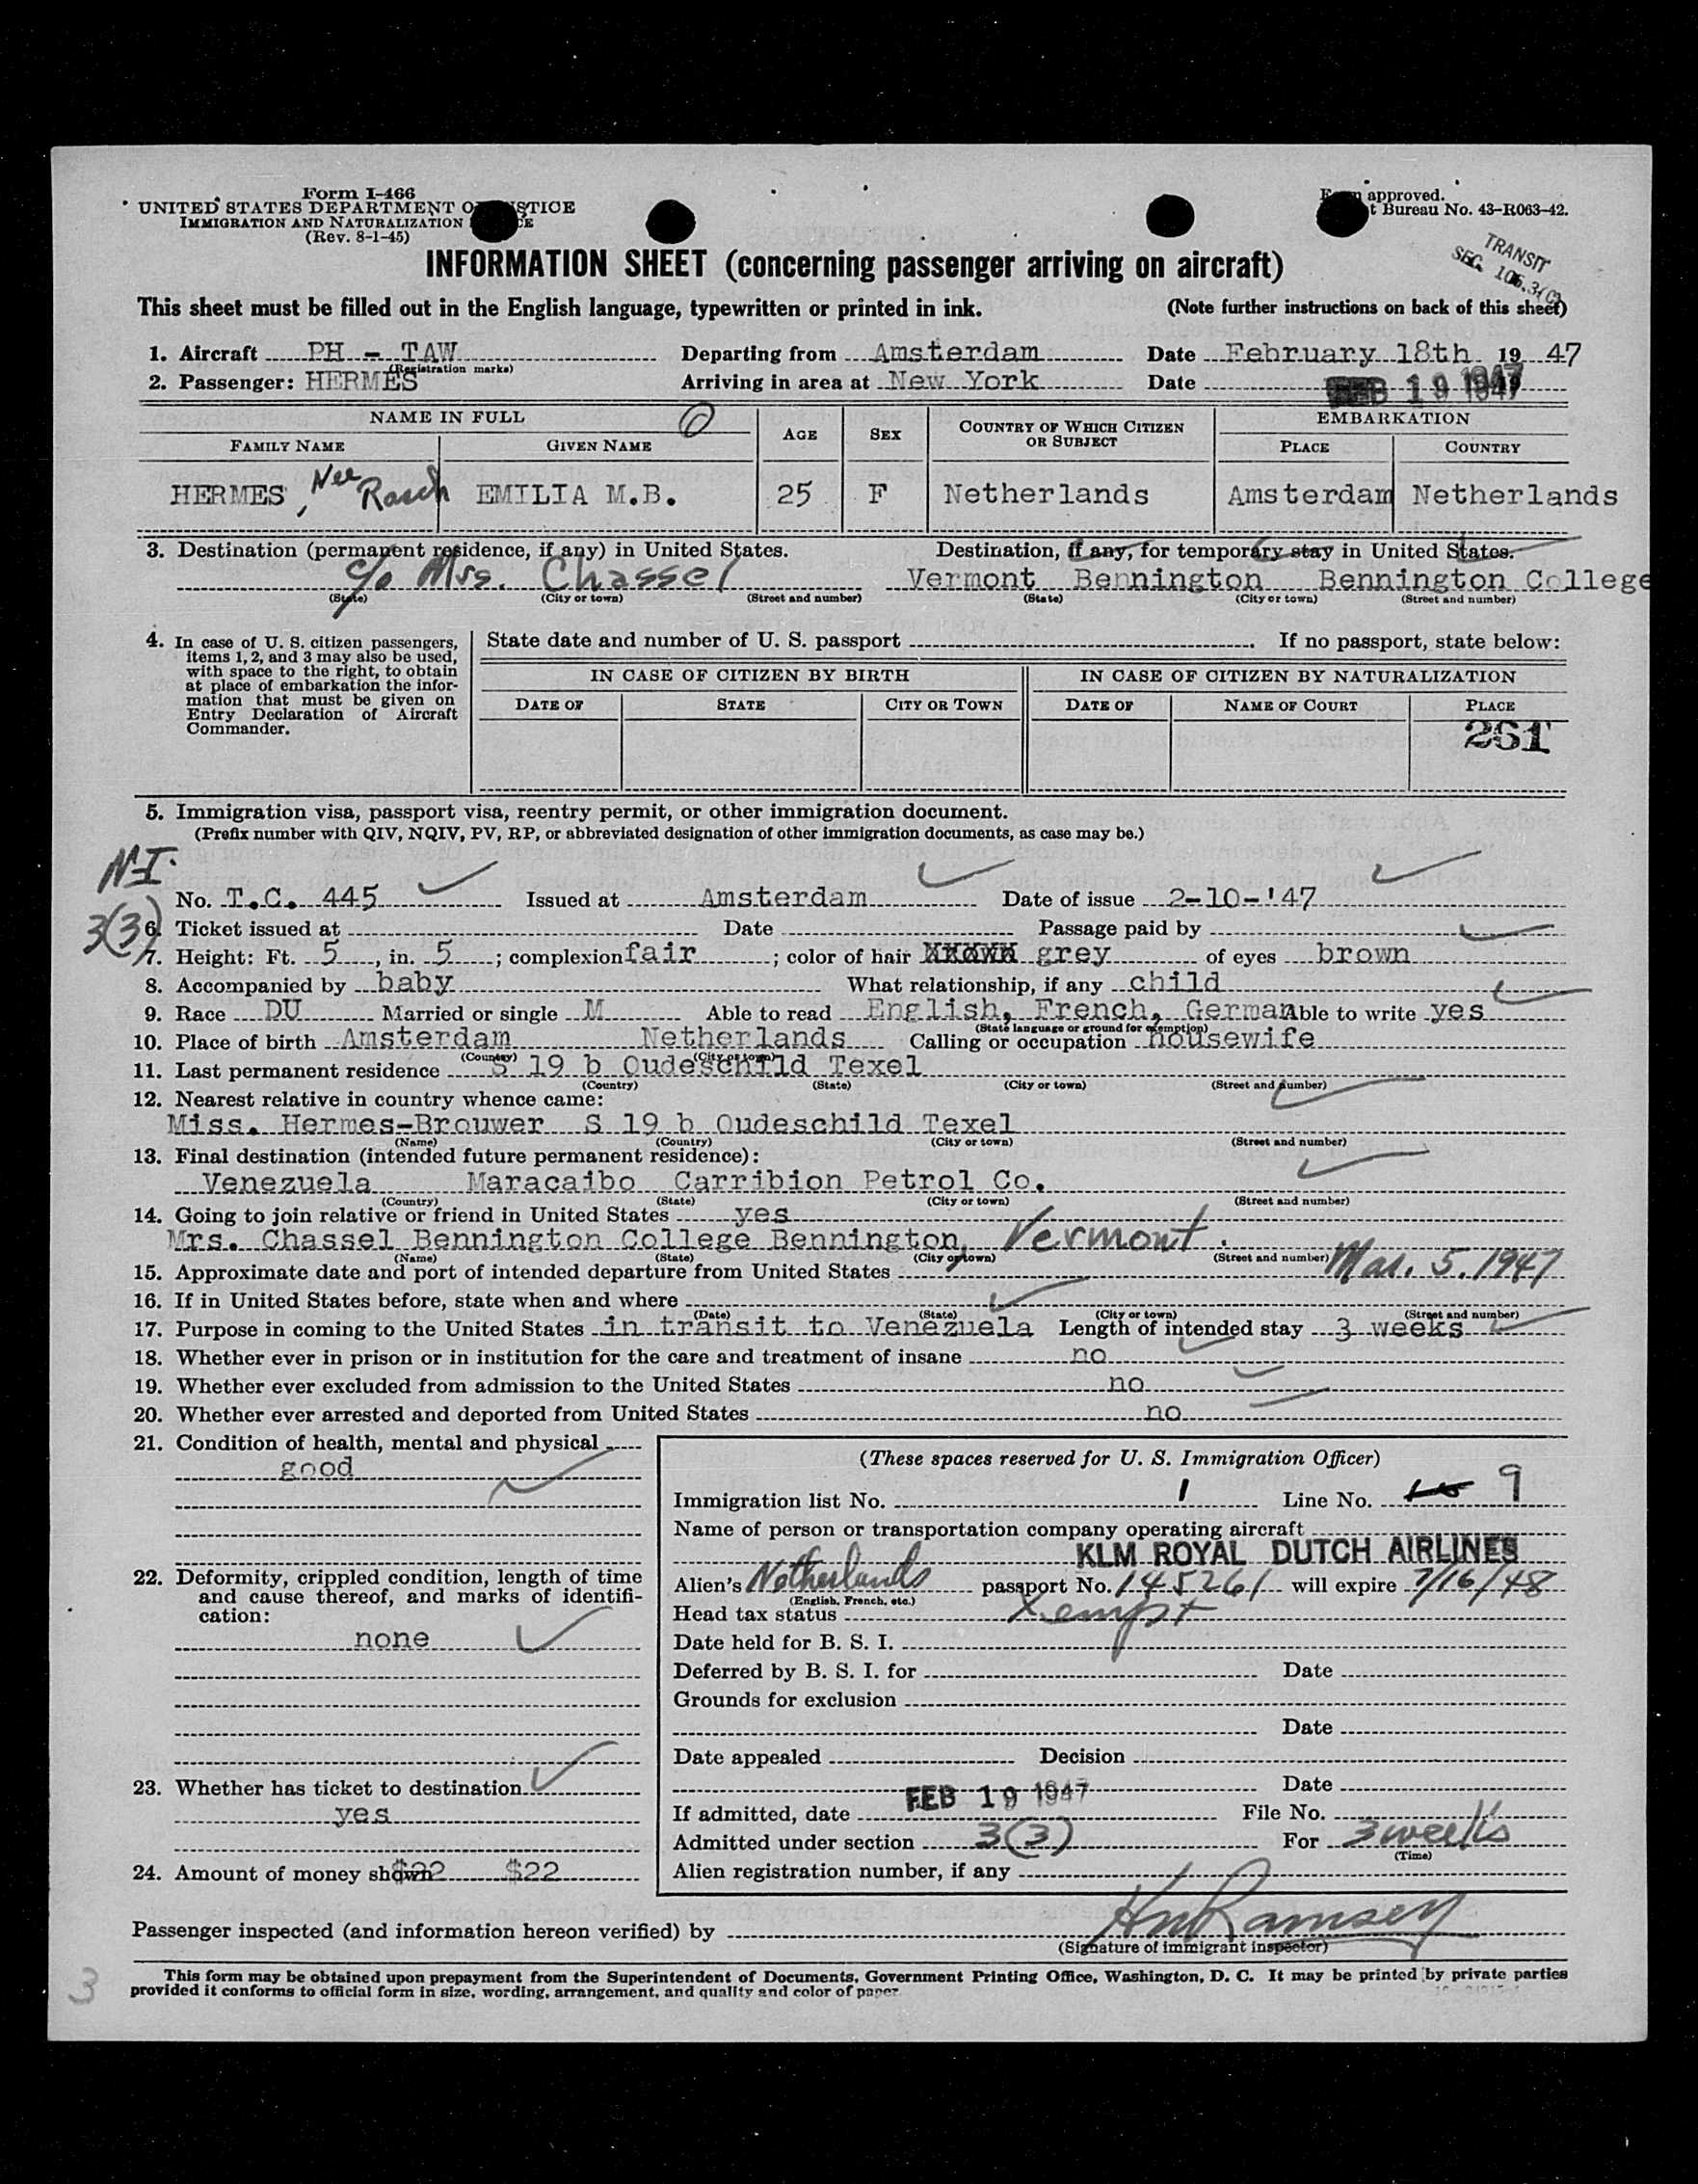 Form I-466
UNITED STATES DEPARTMENT O STICE
IMMIGRATION AND NATURALIZATION CE
(Rev. 8-1-45)
approved.
t Bureau No. 43-R063-42.
TRANSIT
SEC. 105.3(C)
INFORMATION SHEET (concerning passenger arriving on aircraft)
This sheet must be filled out in the English language, typewritten or printed in ink. (Note further instructions on back of this sheet)
1. Aircraft PH - TAW Departing from Amsterdam Date February 18th 19 47
(Registration marks)
2. Passenger: HERMES Arriving in area at New York Date FEB 19 1947
NAME IN FULL AGE SEX COUNTRY OF WHICH CITIZEN OR SUBJECT EMBARKATION
FAMILY NAME GIVEN NAME PLACE COUNTRY
HERMES, Nee Rasch EMILIA M.B. 25 F Netherlands Amsterdam Netherlands
3. Destination (permanent residence, if any) in United States. Destination, if any, for temporary stay in United States.
c/o Mrs. Chassel Vermont Bennington Bennington College
(State) (City or town) (Street and number) (State) (City or town) (Street and number)
4. In case of U. S. citizen passengers,
items 1, 2, and 3 may also be used,
with space to the right, to obtain
at place of embarkation the infor-
mation that must be given on
Entry Declaration of Aircraft
Commander.
State date and number of U. S. passport . If no passport, state below:
IN CASE OF CITIZEN BY BIRTH IN CASE OF CITIZEN BY NATURALIZATION
DATE OF STATE CITY OR TOWN DATE OF NAME OF COURT PLACE
261
5. Immigration visa, passport visa, reentry permit, or other immigration document.
(Prefix number with QIV, NQIV, PV, RP, or abbreviated designation of other immigration documents, as case may be.)
N-I.
No. T.C. 445 Issued at Amsterdam Date of issue 2-10-'47
3(3)
6. Ticket issued at Date Passage paid by
7. Height: Ft. 5, in. 5; complexion fair; color of hair grey of eyes brown
8. Accompanied by baby What relationship, if any child
9. Race DU Married or single M Able to read English, French, German Able to write yes
(State language or ground for exemption)
10. Place of birth Amsterdam Netherlands Calling or occupation housewife
(Country) (City or town)
11. Last permanent residence S 19 b Oudeschild Texel
(Country) (State) (City or town) (Street and number)
12. Nearest relative in country whence came:
Miss. Hermes-Brouwer S 19 b Oudeschild Texel
(Name) (Country) (City or town) (Street and number)
13. Final destination (intended future permanent residence):
Venezuela Maracaibo Carribion Petrol Co.
(Country) (State) (City or town) (Street and number)
14. Going to join relative or friend in United States yes
Mrs. Chassel Bennington College Bennington, Vermont.
(Name) (State) (City or town) (Street and number)
15. Approximate date and port of intended departure from United States Mar. 5. 1947
16. If in United States before, state when and where
(Date) (State) (City or town) (Street and number)
17. Purpose in coming to the United States in transit to Venezuela Length of intended stay 3 weeks
18. Whether ever in prison or in institution for the care and treatment of insane no
19. Whether ever excluded from admission to the United States no
20. Whether ever arrested and deported from United States no
21. Condition of health, mental and physical
good
22. Deformity, crippled condition, length of time
and cause thereof, and marks of identifi-
cation:
none
23. Whether has ticket to destination
yes
24. Amount of money shown $22 $22
(These spaces reserved for U. S. Immigration Officer)
Immigration list No. 1 Line No. 9
Name of person or transportation company operating aircraft
KLM ROYAL DUTCH AIRLINES
Alien's Netherlands passport No. 145261 will expire 7/16/48
(English, French, etc.)
Head tax status Xempt
Date held for B. S. I.
Deferred by B. S. I. for Date
Grounds for exclusion
Date
Date appealed Decision
Date
If admitted, date FEB 19 1947 File No.
Admitted under section 3(3) For 3 weeks
(Time)
Alien registration number, if any
Passenger inspected (and information hereon verified) by Ramsey
(Signature of immigrant inspector)
3
This form may be obtained upon prepayment from the Superintendent of Documents, Government Printing Office, Washington, D. C. It may be printed by private parties
provided it conforms to official form in size, wording, arrangement, and quality and color of paper